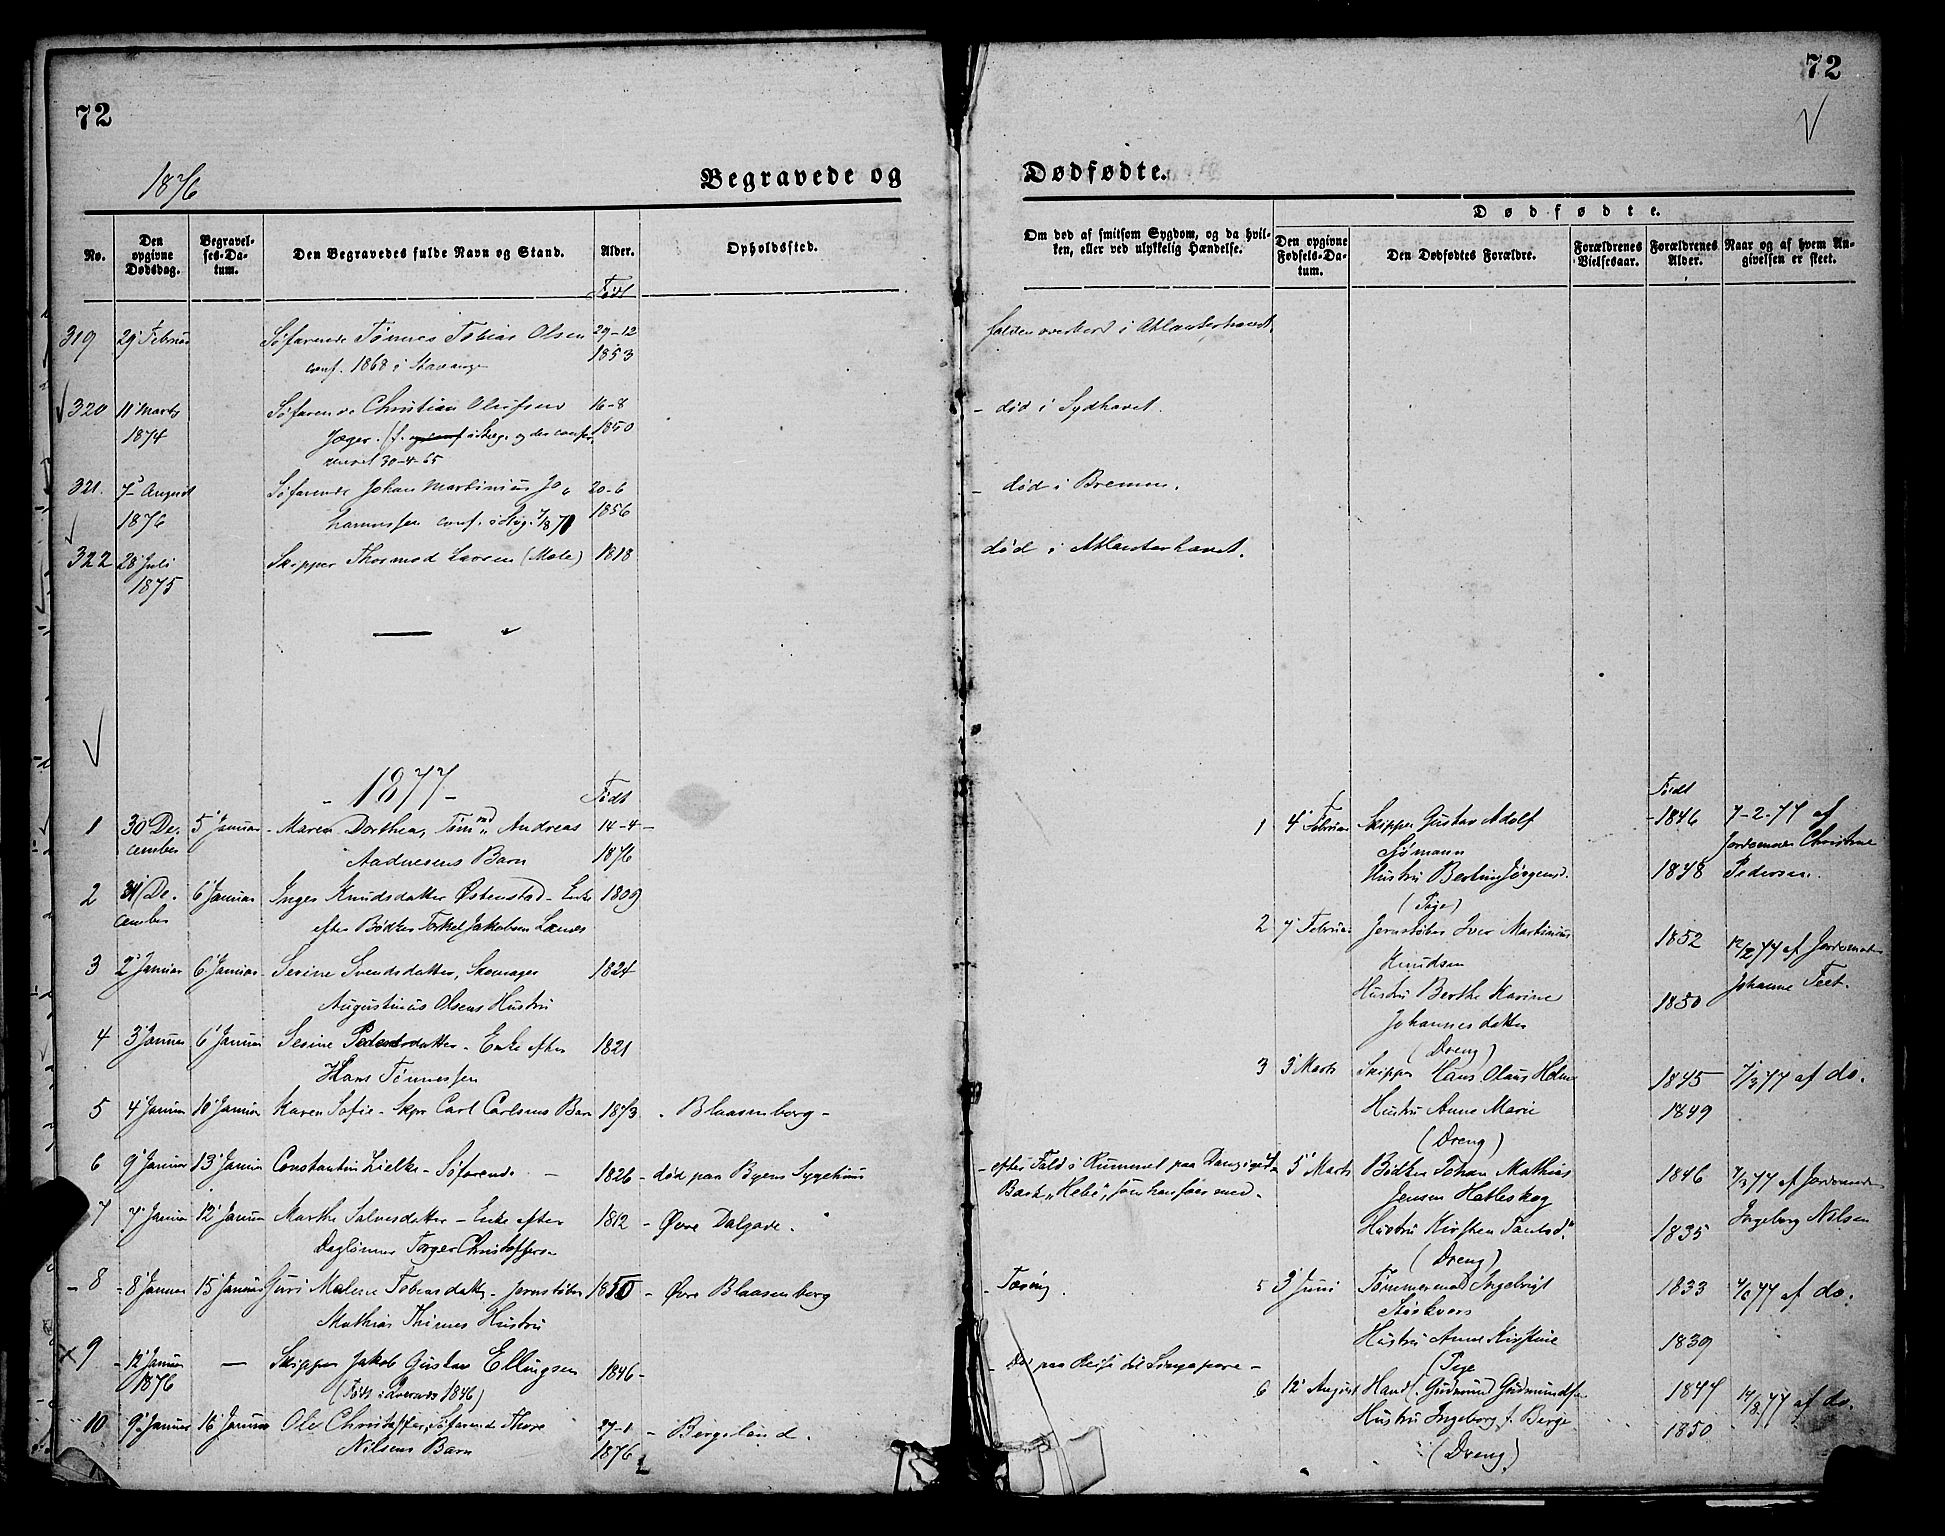 72
72
1876
Begravede og
Dødfødte.
No.
Den opgivne Dødsdag.
Begravelses-Datum.
Den Begravedes fulde Navn og Stand.
Alder.
Opholdssted.
Om død af smitsom Sygdom, og da hvilken, eller ved ulykkelig Hændelse.
Dødfødte.
Den opgivne Fødsels-Datum.
Den Dødfødtes Forældre.
Forældrenes Vielsesaar.
Forældrenes Alder.
Naar og af hvem Angivelsen er skeet.
Født
319 29 Februar Søfarende Tønnes Tobias Olsen 29-12 falden overbord i Atlanterhavet
conf. 1868 i Stavanger 1853
320 11 Marts Søfarende Christian Olufsen 16-8 - død i Sydhavet.
1874 Jæger. 1850
30-4-65
321. 7 August Søfarende Johan Martinius Jo- 20-6 - død i Bremen.
1876 hannessen conf. i 1856
322 28 Juli Skipper Thormod Larsen (Male) 1818 død i Atlanterhavet.
1875
- 1877 -
Født
1 30 De- 5 Januar Maren Dorthea, Tømmd Andreas 14-4-
cember Aadnesens Barn 1876
2 31 De- 6 Januar Inger Knudsdatter Østenstad - Enke 1809
cember efter Bødker Torkel Jakobsen
3 2 Januar 6 Januar Sesine Svendsdatter, Skomager 1824
Augustinus Olsens Hustru
4 3 Januar 6 Januar Sesine Pedersdatter - Enke efter 1821
Hans Tønnessen
5 4 Januar 10 Januar Karen Sofie - Skpr Carl Carlsens Barn 1873 - Blaasenborg -
6 9 Januar 13 Januar Constantin Zielke - Søfarende - 1826 - død paa Byens Sygehuus
- efter Fald i Rummet paa
Bark "Hebe", som han foer med.
7 7 Januar 12 Januar Marthe Salvesdatter - Enke efter 1812 - Øvre Dalgade.
Daglønner Torger Christoffersen
8 8 Januar 15 Januar Guri Malene Tobiasdatter - Jernstøber 1850 - Øvre Blaasenborg - Tæring.
Mathias Thimes Hustru
9 12 Januar - Skipper Jakob Gustav Ellingsen 1846 - - Død paa Reise til Singapore -
1876 (Født i 1846)
10 9 Januar 16 Januar Ole Christoffer, Søfarende Thore 27-1 - Bergeland.
Nilsens Barn 1876
Født
1 4 Februar Skipper Gustav Adolf - 1846 7-2-77 af
Sømann Jordemoder Christine
Hustru Bertine Jørgensd. 1848 Pedersen.
(Pige)
2 7 Februar Jernstøber Iver Martinius 1852 12/2 77 af Jordemoder
Knudsen Johanne Feet.
Hustru Berthe Karine 1850
Johannesdatter
(Dreng)
3 3 Marts Skipper Hans Olaus Holm 1845 7/3 77 af do.
Hustru Anne Marie 1849
(Dreng)
5 Marts Bødker Johan Mathias 1846 7/3 77 af Jordemoder
Jensen Hatleskog Ingeborg Nilsen
Hustru Kirsten 1835
(Dreng)
5 3 Juni Tømmermand Ingebrigt 1833 4/6 77 af do.
Hustru Anne Kirstine 1839
(Pige
6 12 August Handl. Gudmund Gudmundsen 1847 14/8 77 af do.
Hustru Ingeborg f. Berge 1850
(Dreng)